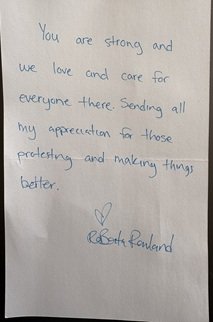 You are strong and
we love and care for
everyone there. Sending all
my appreciation for those
protesting and making things
better.
Roberta Rowland